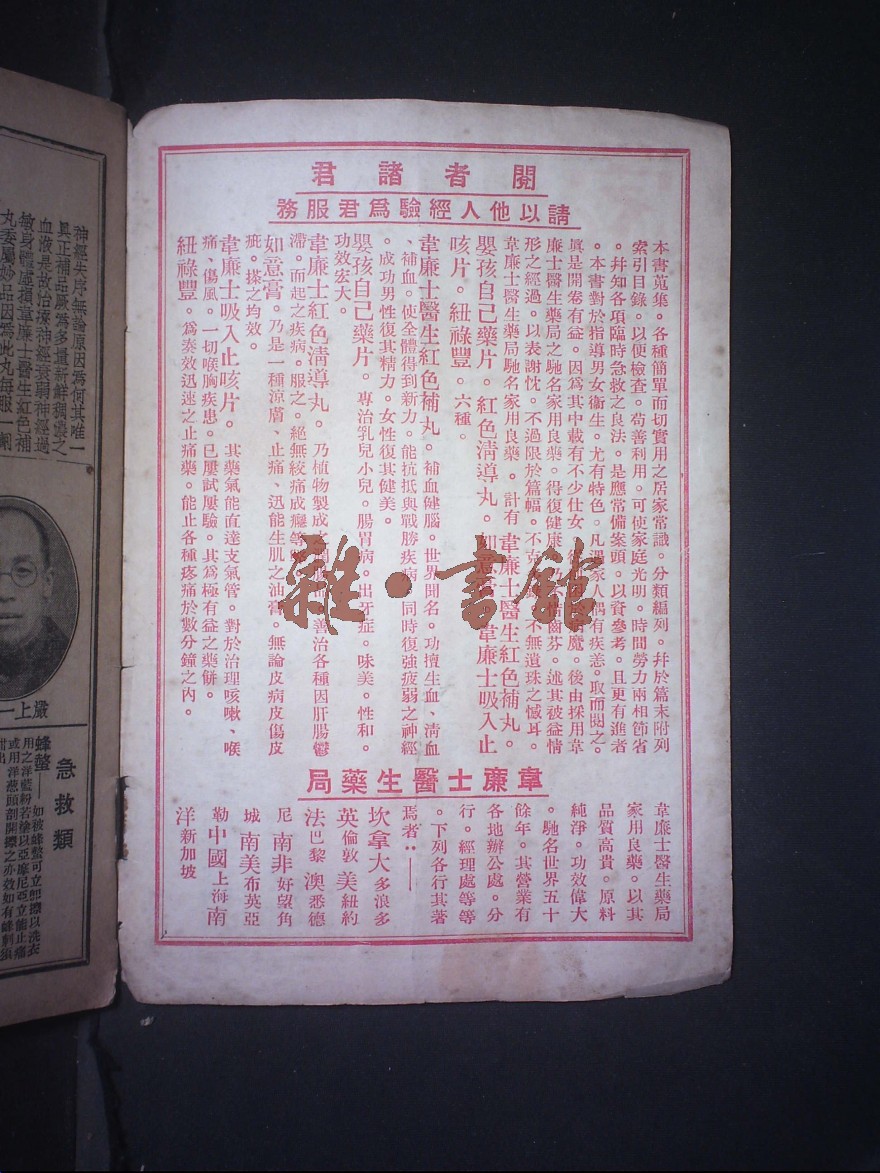 閱者諸君
請以他人經驗爲君服務
本書蒐集。各種簡單而切實用之居家常識。分類編列。幷於篇末附列
索引目錄。以便檢查。苟善利用。可使家庭光明。時間勞力兩相節省
。幷知各項臨時急救之良法。是應常備案頭。以資參考。且更有進者
。本書對於指導男女衞生。尤有特色。凡遇家人偶有疾恙。取而閱之。
眞是開卷有益。因爲其中載有不少仕女。魔。後由採用韋
廉士醫生藥局之馳名家用良藥。得復健康。惜齒芬。述其被益情
形之經過。以表謝忱。不過限於篇幅。不克。不無遺珠之憾耳。
韋廉士醫生藥局馳名家用良藥。計有 韋廉士醫生紅色補丸。
嬰孩自己藥片。紅色淸導丸。如意膏。韋廉士吸入止
咳片。紐祿豐。六種。
韋廉士醫生紅色補丸。補血健腦。世界聞名。功擅生血、淸血
、補血。使全體得到新力。能抗抵與戰勝疾病。同時復強疲弱之神經
。成功男性復其精力。女性復其健美。
嬰孩自己藥片。專治乳兒小兒。腸胃病。出牙症。味美。性和。
功效宏大。
韋廉士紅色淸導丸。乃植物製成。善治各種因肝腸鬱
滯。而起之疾病。服之。絕無絞痛成癮等
如意膏。乃是一種涼膚、止痛、迅能生肌之油膏。無論皮病皮傷皮
疵。搽之均效。
韋廉士吸入止咳片。其藥氣能直達支氣管。對於治理咳嗽、喉
痛、傷風。一切喉胸疾患。已屢試屢驗。其爲極有益之藥餅。
紐祿豐。爲奏效迅速之止痛藥。能止各種疼痛於數分鐘之內。
韋廉士醫生藥局
韋廉士醫生藥局
家用良藥。以其
品質高貴。原料
純淨。功效偉大
。馳名世界五十
餘年。其營業有
各地辦公處。分
行。經理處等等
。下列各行其著
焉者:——
坎拿大多浪多
英倫敦 美紐約
法巴黎 澳悉德
尼 南非好望角
城 南美布英亞
勒 中國上海 南
洋新加坡
神經失序無論原因爲何其唯一
眞正補品厥爲多量新鮮稠濃之
血液是故治療神經衰弱神經過
敏身體虛損韋廉士醫生紅色補
丸委屬妙品因爲此丸每服一劑
嚴上一
急救類
蜂螫——如被蜂螫可立卽擦以洗衣
用之洋藍粉若搽以亞摩尼亞立能止痛
或用洋葱頭剖開擦之亦效如有蜂刺須